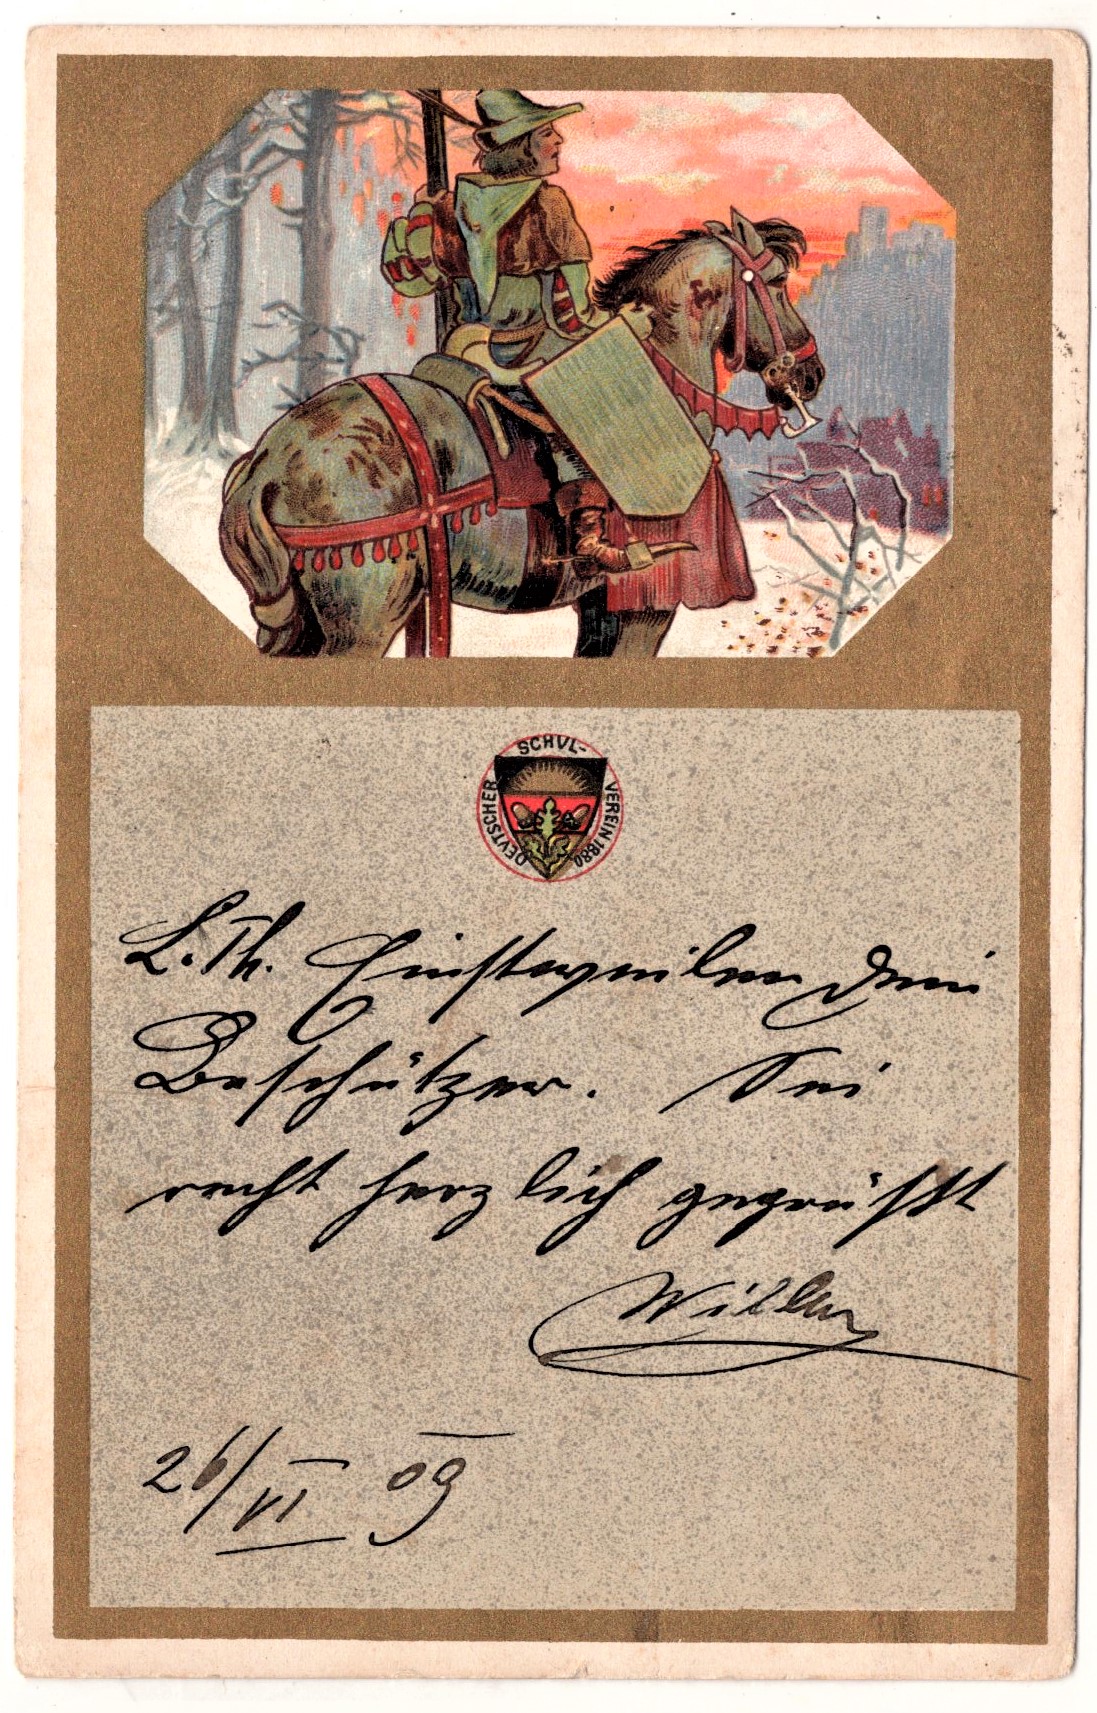 DEVTSCHER SCHVL-VEREIN 1880
L. Th. Einstweilen Dein
Beschützer. Sei
recht herzlich gegrüßt
Willy
26/VI 09